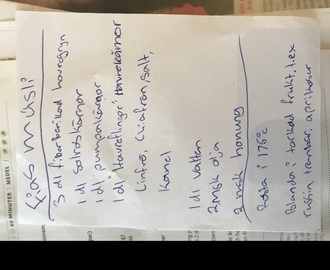 Lias müsli
3 dl fiberberikad havregryn
1 dl solroskärnor
1 dl pumpakärnor
1 dl havreflingor havrekärnor
Linfrö, Chiafrön, salt,
Kanel
1 dl vatten
2 msk olja
2 msk honung
Rosta i 175°C
Blanda i torkad frukt t.ex
russin, tranbär, aprikoser
60 MINUTER | MEDEL |